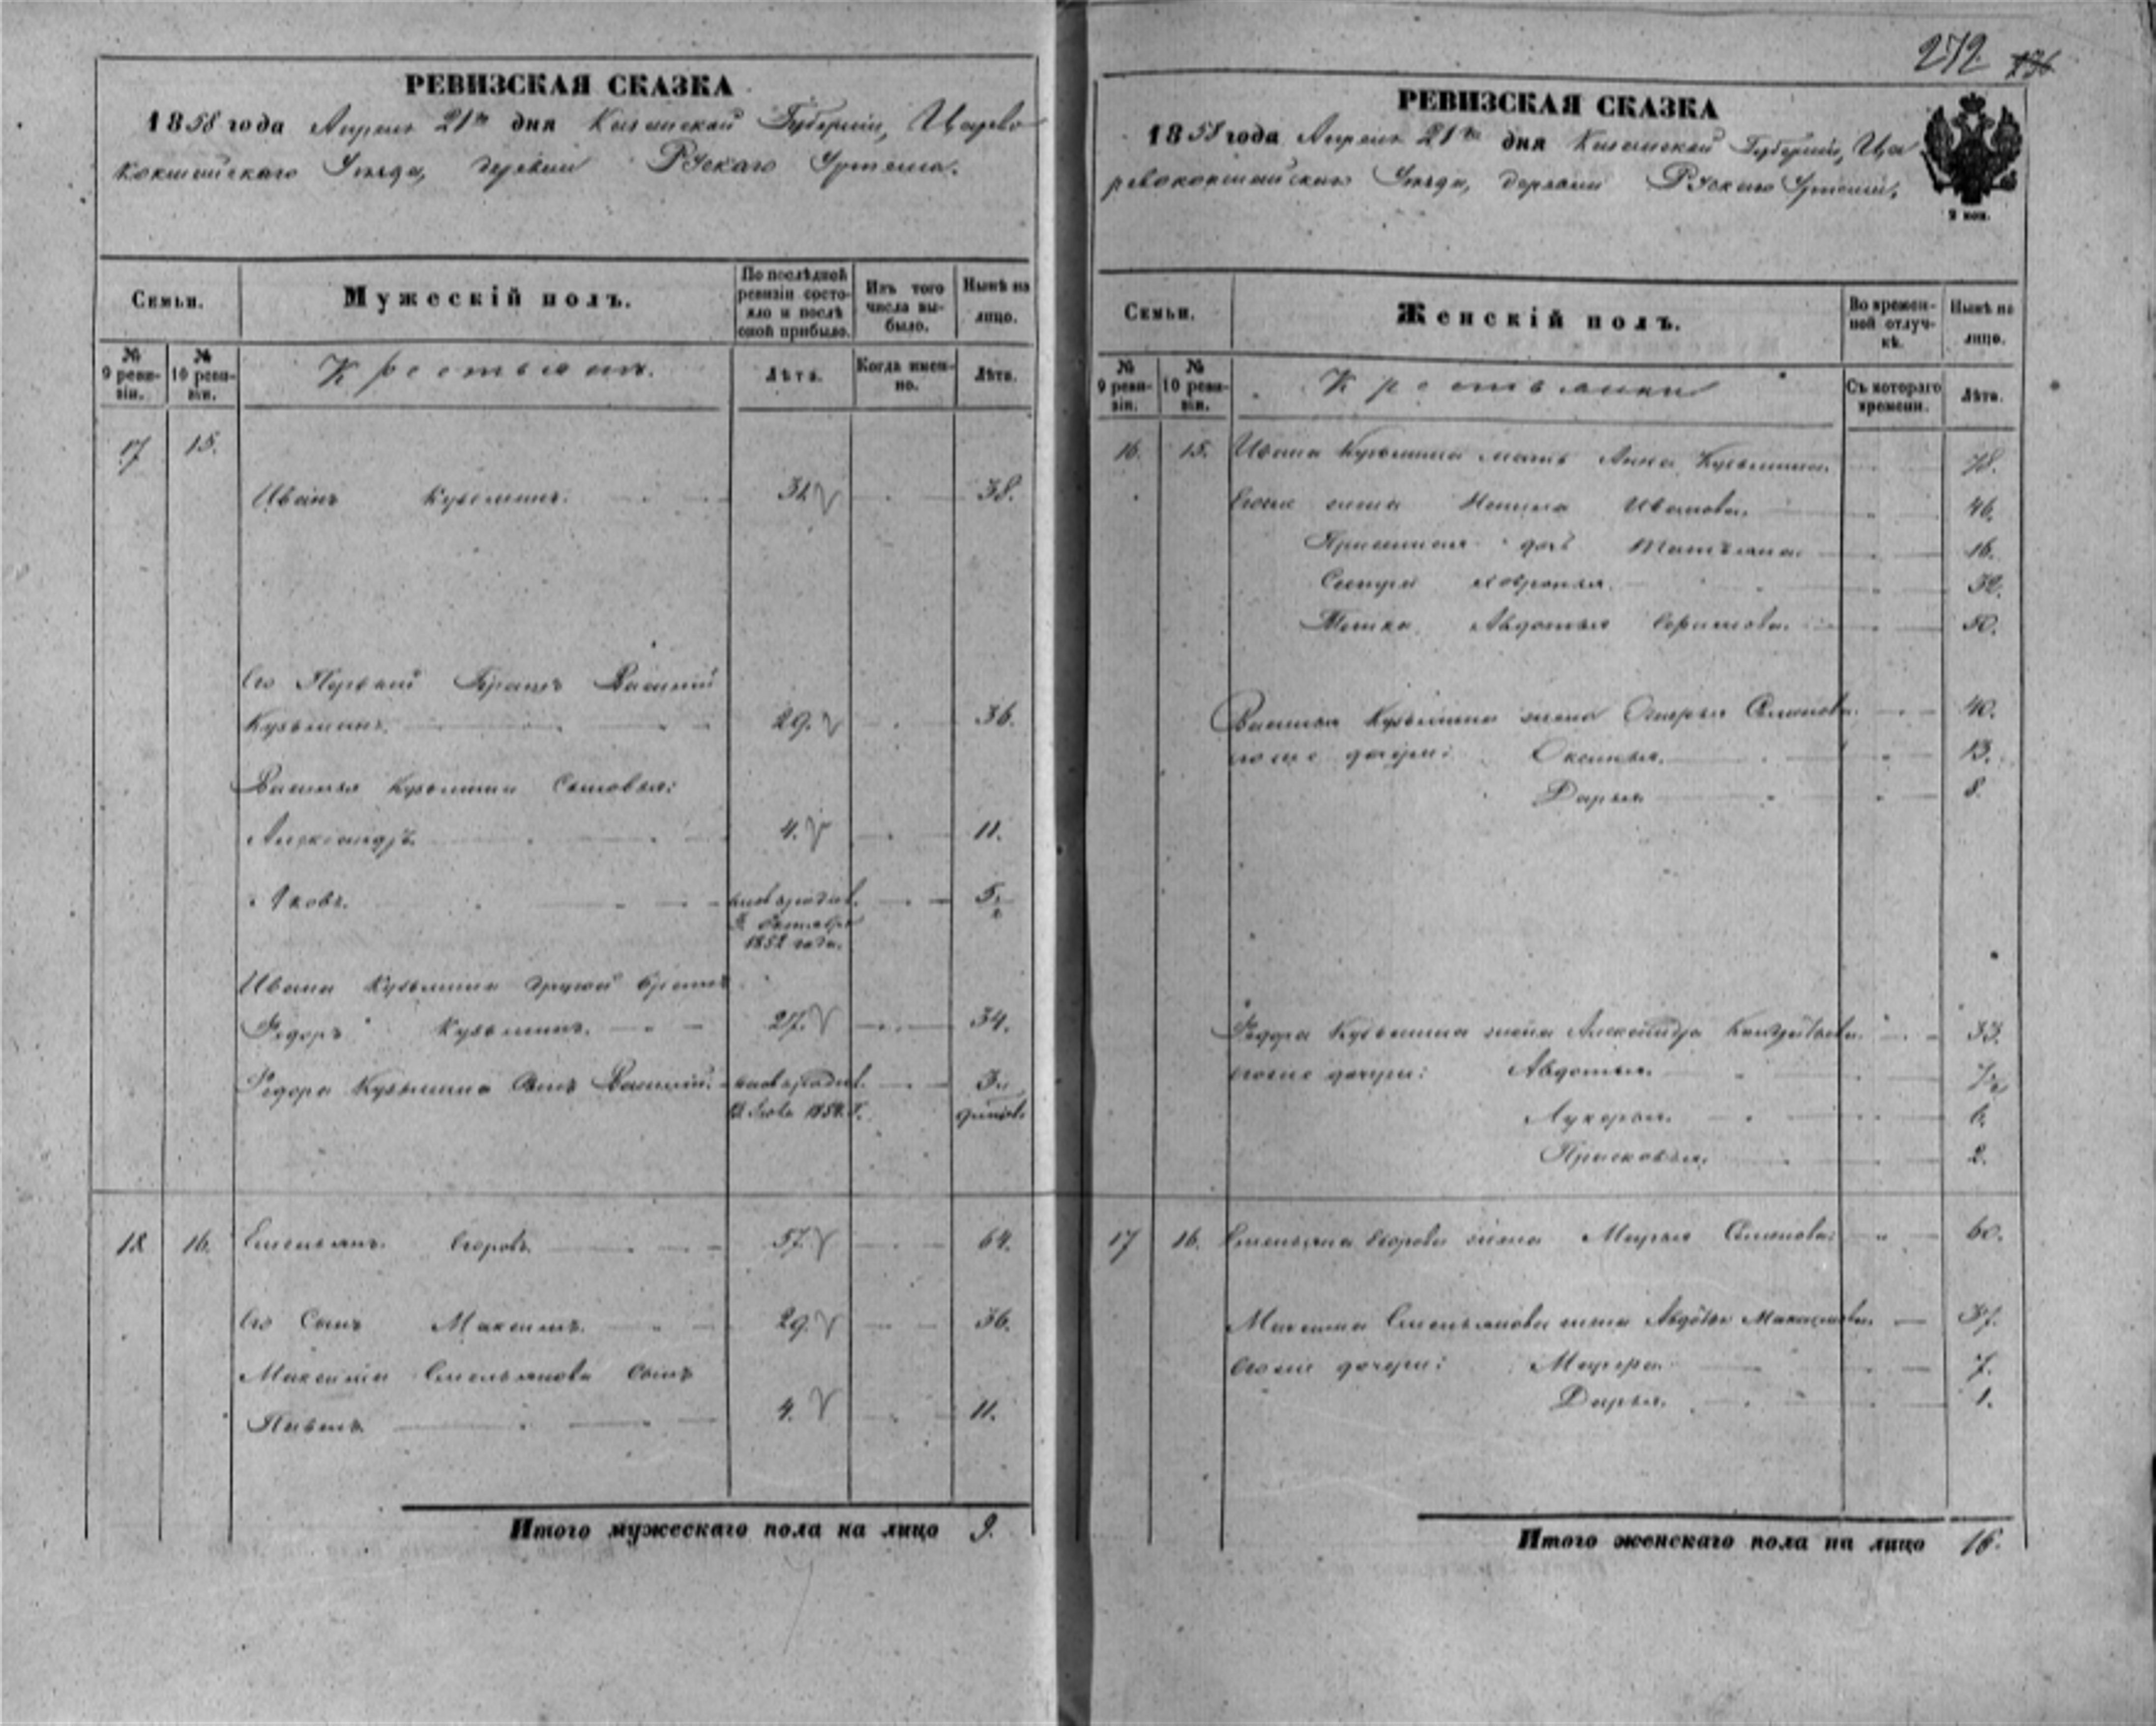 272.
РЕВИЗСКАЯ СКАЗКА
1858 года Апреля 21го дня Казанской Губернии, Царево
кокшайскаго Уезда, деревни Рускаго Уртема.
Семьи.
Мужескій полъ.
По послѣдней ревизіи состояло и послѣ оной прибыло.
Изъ того числа выбыло.
Нынѣ на лицо.
№ 9 ревизіи.
№ 10 ревизіи.
Крестьяне.
Лѣта.
Когда именно.
Лѣта.
17 15.
Иванъ Кузьминъ. 31 38.
Его Первый Братъ Василий
Кузьминъ. 29. 36.
Василья Кузьмина Сыновья:
Александръ 4. 11.
Яковъ. 5
1852 года.
Ивана Кузьмина другой братъ
Федоръ Кузьминъ. 27. 34.
Федора Кузьмина Сынъ Василий. 3
18 16. Емельянъ Егоровъ 57. 64.
Его Сынъ Максимъ. 29. 36.
Максима Емельянова Сынъ
Павелъ 4. 11.
Итого мужескаго пола на лицо 9.
РЕВИЗСКАЯ СКАЗКА
1858 года Апреля 21го дня Казанской Губернии, Ца
ревококшайскаго Уезда, деревни Рускаго Уртема.
2 коп.
Семьи.
Женскій полъ.
Во временной отлучкѣ.
Нынѣ на лицо.
№ 9 ревизіи.
№ 10 ревизіи.
Крестьянки
Съ котораго времени.
Лѣта.
16. 15. Ивана Кузьмина мать Анна Кузьмина. 78.
Егоже жена Ивановa. 46.
дочь Татьяна. 16.
Сестра 32.
Тетка Авдотья 50.
Василья Кузьмина жена Семенова. 40.
егоже дочери: Оксинья. 13.
Дарья 8.
Федора Кузьмина жена Александра 33.
егоже дочери: Авдотья. 7
Лукерья. 6.
Прасковья. 2.
17 16. Емельяна Егорова жена Марья Семенова: 60.
Максима Емельянова жена Авдотья Максимова. 37.
Егоже дочери: 7.
Дарья. 1.
Итого женскаго пола на лицо 16.